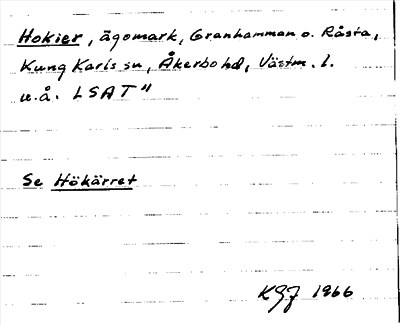 Hokier, ägomark, Granhamman o. Råsta,
Kung Karls sn, Åkerbo hd, Västm. l.
u.å. LSA T"
Se Hökärret
KGJ 1966